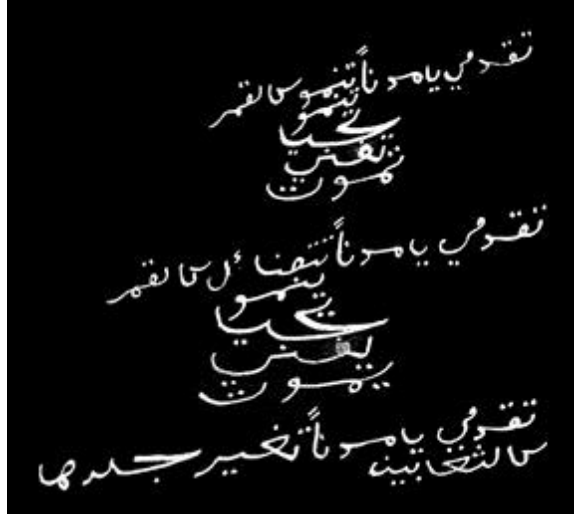 تقدمي يا مدناً تنمو كالقمر
ينمو
يحيا
يفنى
يموت
تقدمي يا مدناً تتضائل كالقمر
ينمو
يحيا
يفنى
يموت
تقدمي يا مدناً تغير جلدها
كالثعابين